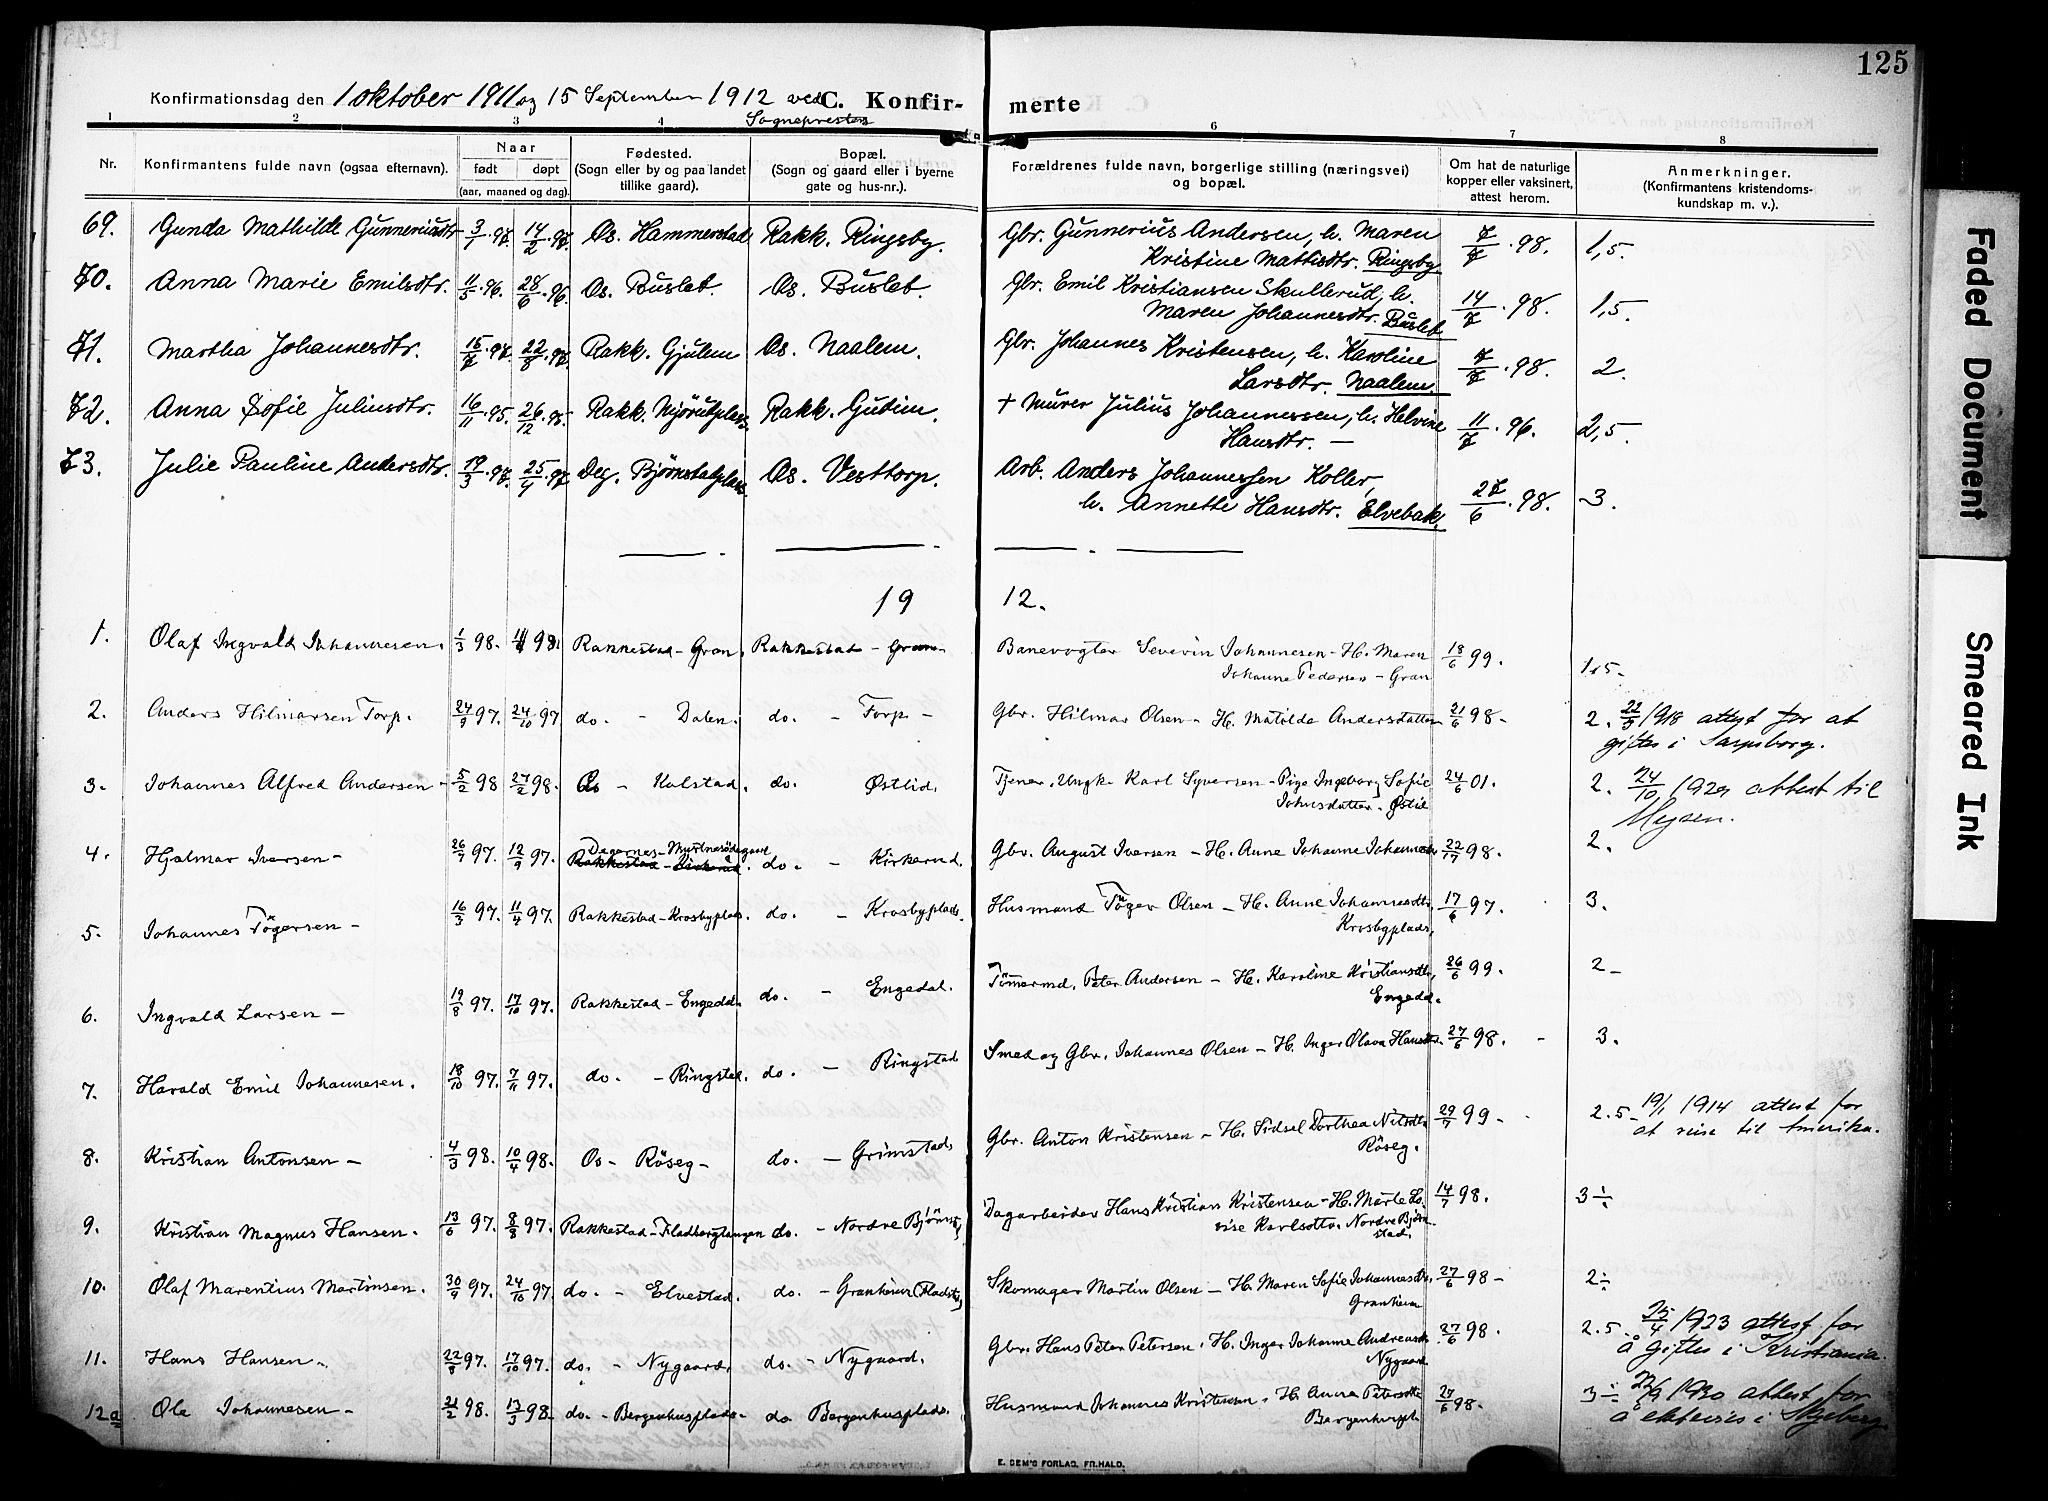 125
Konfirmationsdag den 1 oktober 1911 og 15 September 1912 ved C. Konfir- merte
Sognepresten
1 2 3 4 6 7 8
Nr. Konfirmantens fulde navn (ogsaa efternavn). Naar født døpt (aar, maaned og dag). Fødested. (Sogn eller by og paa landet tillike gaard). Bopæl. (Sogn og gaard eller i byerne gate og hus-nr.). Forældrenes fulde navn, borgerlige stilling (næringsvei) og bopæl. Om hat de naturlige kopper eller vaksinert, attest herom. Anmerkninger. (Konfirmantens kristendoms- kundskap m. v.).
69. Gunda Mathilde Gunneriusdtr. 3/1.97. 14/2.97. Os. Hammerstad Rakk. Ringsby. Gbr. Gunnerius Andersen, h. Maren 7/7.98. 1,5.
Kristine Mathisdtr. Ringsby
70. Anna Marie Emilsdtr. 11/5.96. 28/6.96. Os. Buslet. Os. Buslet. Gbr. Emil Kristiansen Skullerud, h. 14/7.98. 1,5.
Maren Johannesdtr. Buslet
71. Martha Johannesdtr. 15/7.97. 22/8.97. Rakk. Gjulem Os. Naalem. Gbr. Johannes Kristensen, h. Karoline 7/7.98. 2.
Larsdtr. Naalem.
72. Anna Sofie Juliusdtr. 16/11.95. 26/12.95. Rakk. Mjörudplads Rakk. Gudim. + Murer Julius Johannessen, h. Helvine 11/7.96. 2,5.
Hansdtr. —
73. Julie Pauline Andersdtr. 19/3.97. 25/4.97 Deg. Bjørnstadplads Os. Vesttorp. Arb. Anders Johannessen Koller,
h. Annette Hansdtr. Elvebak. 27/6.98. 3.
19 12.
1. Olaf Ingvald Johannesen. 1/3 98. 98. Rakkestad - Gran. Rakkestad - Gran - Banevogter Severin Johannesen - H. Maren 18/6 99. 1.5-
Johanne Pedersen - Gran
2. Anders Hilmarsen Torp. 24/9 97. 24/10 97 do. - Dalen. do. - Torp - Gbr. Hilmar Olsen - H. Matilde Andersdatter 21/6 98 - 2. 22/3 1918 attest for at
giftes i Sarpsborg.
3. Johannes Alfred Andersen - 5/2 98 27/2 98. Os - Kolstad. do. Østlid. Tjener, Ungk. Karl Syversen - Pige Ingeborg Sofie 24/6 01. 2. 24/10 1929 attest til
Johnsdatter - Østlid Mysen.
4. Hjalmar Iversen - 26/7 97. 12/9 97. Degernes - Myrtnesödegaard
Rakkestad - Kirkerud. do. - Kirkerud. Gbr. August Iversen - H. Anne Johanne Johannesdtr 22/17 98. 2.
5. Johannes Tögersen - 16/3 97. 11/4 97. Rakkestad - Krosbyplads. do. - Krosbyplads. Husmand Töger Olsen - H. Anne Johannesdtr. 17/6 97. 3.
Krosbyplads.
6. Ingvald Larsen - 19/8 97. 17/10 97. Rakkestad - Engedal. do. - Engedal. Tömermd. Peter Andersen - H. Karoline Kristiansdtr. 26/6 99. 2 -
Engedal.
7. Harald Emil Johannesen. 18/10 97. 7/11 97. do. - Ringstad. do. - Ringstad Smed og Gbr. Johannes Olsen - H. Inger Olava Hansdtr. 27/6 98. - 3.
8. Kristian Antonsen - 4/3 98. 10/4 98. Os - Röseg - do. - Grimstad. Gbr. Anton Kristensen - H. Sidsel Dorthea Nilsdtr. 29/7 99 - 2.5 - 19/1 1914 attest for
Röseg. at reise til Amerika.
9. Kristian Magnus Hansen. 13/6 97. 8/8 97. Rakkestad - Fladbergtangen do. - Nordre Bjørnst. Dagarbeider Hans Kristian Kristensen - H. Marte Lo- 14/7 98. 3 ÷
vise Karlsdtr. Nordre Bjørn-
stad.
10. Olaf Marentius Martinsen. 30/9 97. 24/10 97. do. - Elvestad. do. - Granheim (Fladst.) Skomager Martin Olsen - H. Maren Sofie Johannesdtr. 27/6 98 - 2 ÷
Granheim
11. Hans Hansen - 22/8 97. 17/10 97. do. - Nygaard. do. - Nygaard. Gbr. Hans Peter Petersen. H. Inger Johanne Andreasdtr. 27/6 98. 2.5. 25/4 1923 attest for
Nygaard å giftes i Kristiania.
12a Ole Johannesen - 21/2 98. 13/3 98. do. - Bergenhusplads. do. Bergenhusplads. Husmand Johannes Kristensen. H. Anna Petersdtr. 27/6 98. 3 ÷ 22/9 1920 attest for
Bergenhuspl. å ektevies i Skjeberg
E. SEM'S FORLAG, FR.HALD.
Faded Document
Smeared Ink